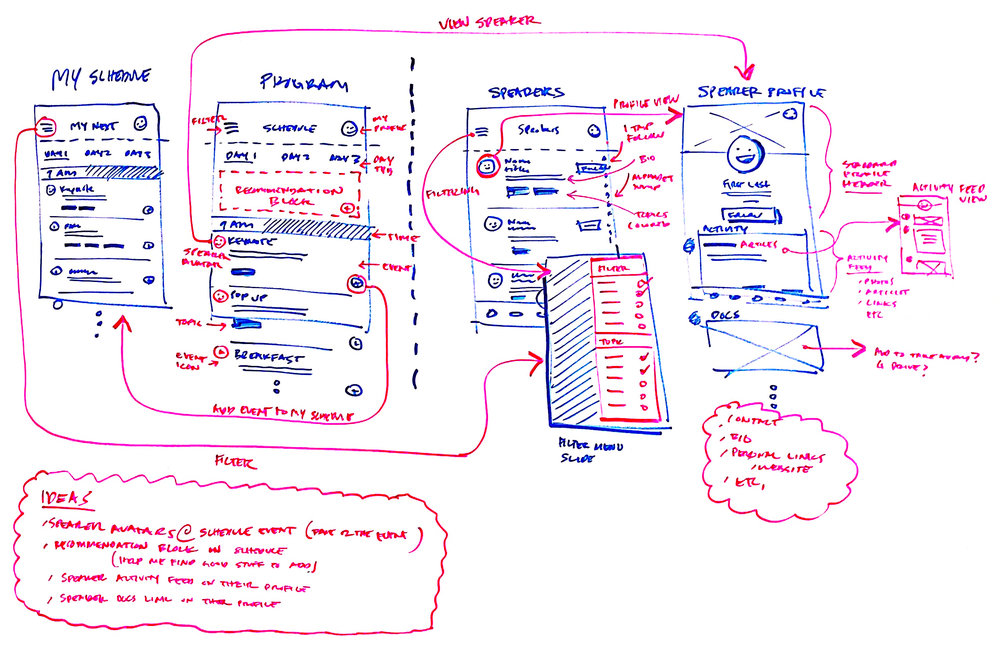 VIEW SPEAKER
MY SCHEDULE
MY NEXT
DAY 1 DAY 2 DAY 3
7 AM
KEYNOTE
PROGRAM
FILTER
SCHEDULE
MY PROFILE
DAY 1 DAY 2 DAY 3
DAY TAB
RECOMMENDATION
BLOCK
7 AM
TIME
KEYNOTE
SPEAKER
AVATAR
EVENT
POP UP
TOPIC
EVENT
ICON
BREAKFAST
ADD EVENT TO MY SCHEDULE
FILTER
SPEAKERS
SPEAKERS
PROFILE VIEW
1 TAP
FOLLOW
NAME
TITLES
BIO
ALPHABET
JUMP
FILTERING
TOPICS
COVERED
NAME
FILTER
TOPIC
FILTER MENU
SLIDE
SPEAKER PROFILE
FIRST LAST
FOLLOW
STANDARD
PROFILE
HEADER
ACTIVITY
ARTICLES
ACTIVITY FEED
VIEW
ACTIVITY
FEED
, PHOTOS
, ARTICLES
, LINKS
ETC
DOCS
ADD TO TAKEAWAYS?
G DRIVE?
, CONTACT
, BIO
, PERSONAL LINKS
, WEBSITE
, ETC,
IDEAS
, SPEAKER AVATARS @ SCHEDULE EVENT (FACE TO THE EVENT)
, RECOMMENDATION BLOCK ON SCHEDULE
(HELP ME FIND GOOD STUFF TO ADD)
, SPEAKER ACTIVITY FEED ON THEIR PROFILE
, SPEAKER DOCS LINK ON THEIR PROFILE